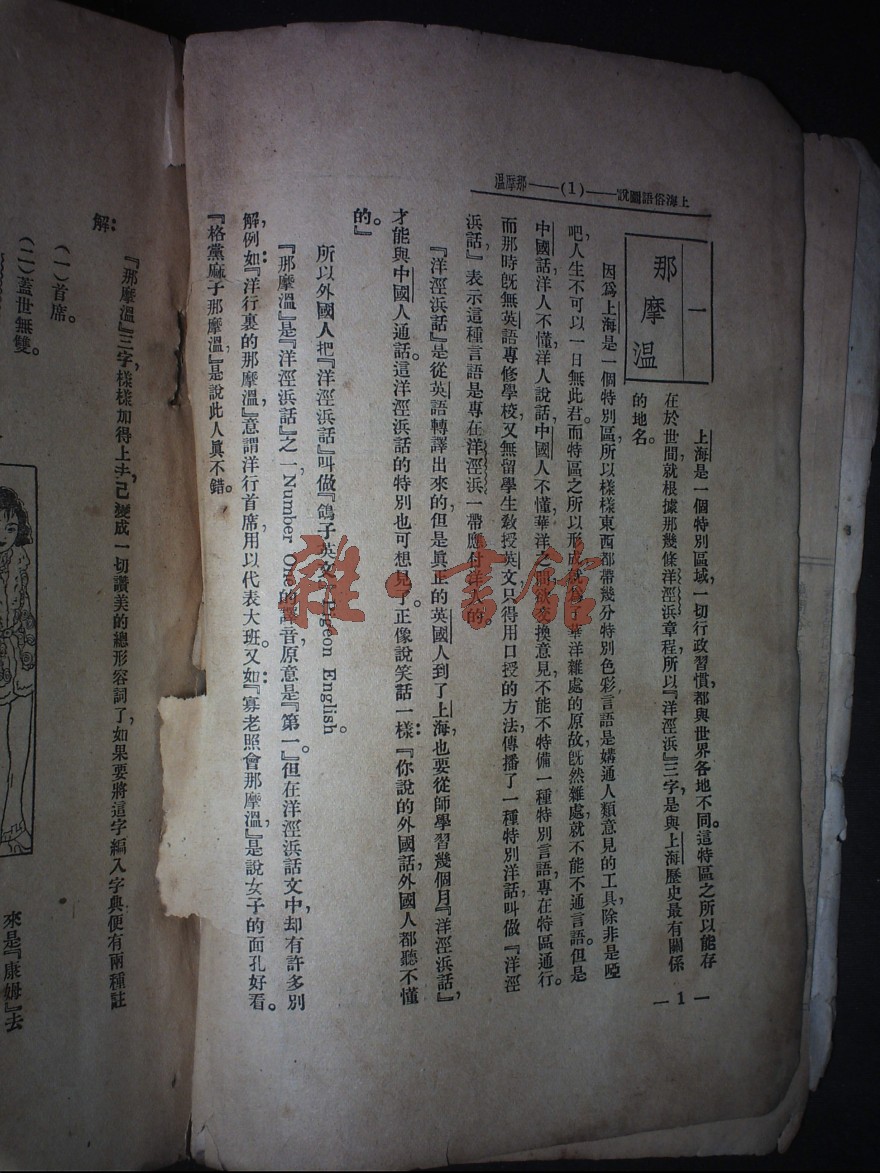 上海俗語圖說——(1)——那摩溫
一
那摩溫
上海是一個特別區域，一切行政習慣，都與世界各地不同。這特區之所以能存
在於世間，就根據那幾條洋涇浜章程，所以『洋涇浜』三字，是與上海歷史最有關係
的地名。
因爲上海是一個特別區，所以樣樣東西都帶幾分特別色彩，言語是媾通人類意見的工具，除非是啞
吧，人生不可以一日無此君。而特區之所以形成，就爲了華洋雜處的原故，旣然雜處，就不能不通言語。但是
中國話洋人不懂，洋人說話，中國人不懂，華洋之間爲交換意見，不能不特備一種特別言語，專在特區通行。
而那時旣無英語專修學校，又無留學生敎授英文，只得用口授的方法，傳播了一種特別洋話，叫做『洋涇
浜話』，表示這種言語是專在洋涇浜一帶應付洋人的。
『洋涇浜話』是從英語轉譯出來的，但是眞正的英國人到了上海，也要從師學習幾個月『洋涇浜話』，
才能與中國人通話。這洋涇浜話的特別也可想見了。正像說笑話一樣：『你說的外國話，外國人都聽不懂
的。』
所以外國人把『洋涇浜話』叫做『鴿子英文』Pigeon English。
『那摩溫』是『洋涇浜話』之一，Number One的譯音，原意是『第一』。但在洋涇浜話文中，却有許多別
解，例如：『洋行裏的那摩溫』，意謂洋行首席，用以代表大班。又如：『寡老照會那摩溫』，是說女子的面孔好看。
『格黨麻子那摩溫』，是說此人眞不錯。
『那摩溫』三字，樣樣加得上去，已變成一切讚美的總形容詞了，如果要將這字編入字典，便有兩種註
解：
（一）首席。
（二）蓋世無雙。
來是『康姆』去
— 1 —
雜·書館